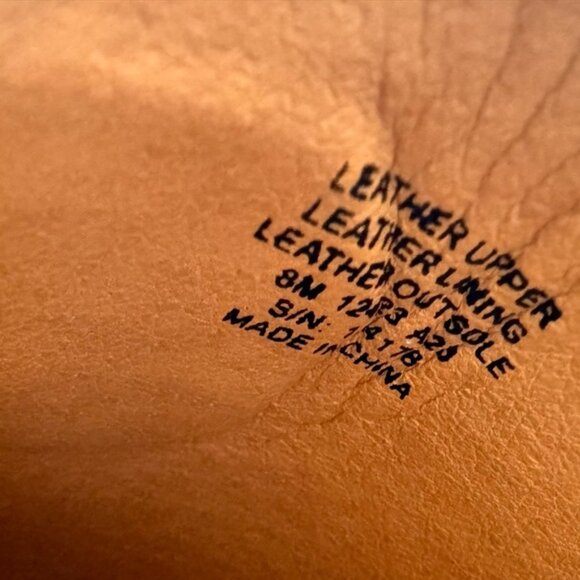 LEATHER UPPER
LEATHER LINING
LEATHER OUTSOLE
8M
S/N: 14178
MADE IN CHINA